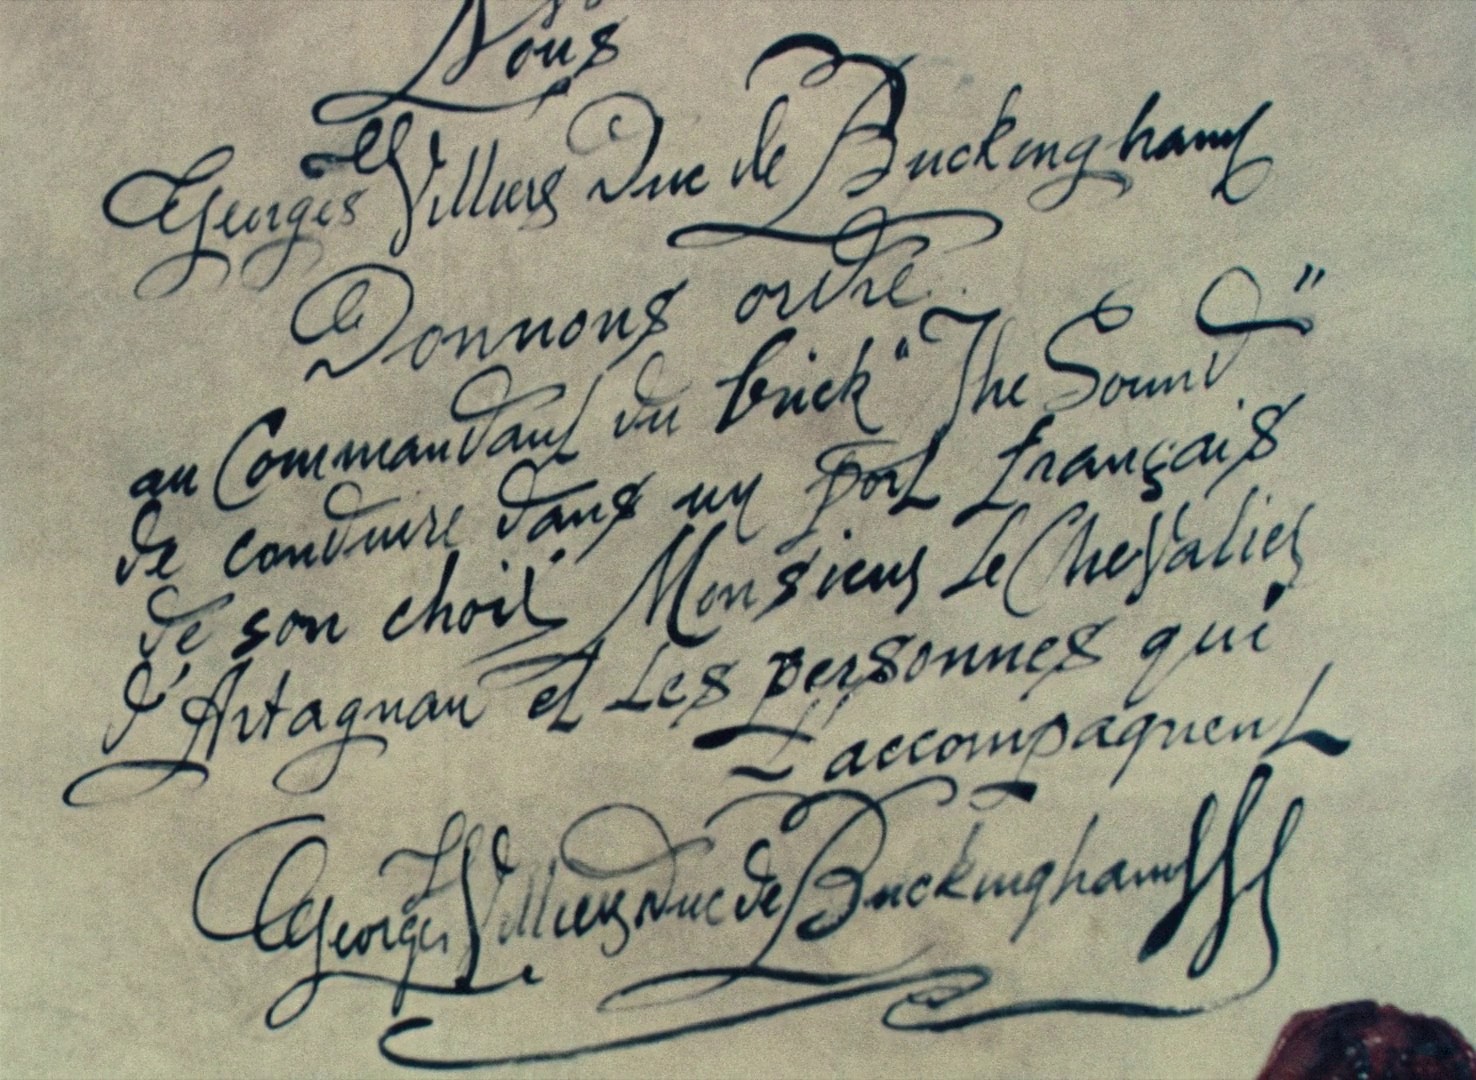 Nous
Georges Villiers Duc de Buckingham
Donnons ordre
au Commandant du brick "The Sound"
de conduire dans un port français
de son choix Monsieur Le Chevalier
d'Artagnan et Les personnes qui
L'accompagnent
Georges Villiers Duc de Buckingham